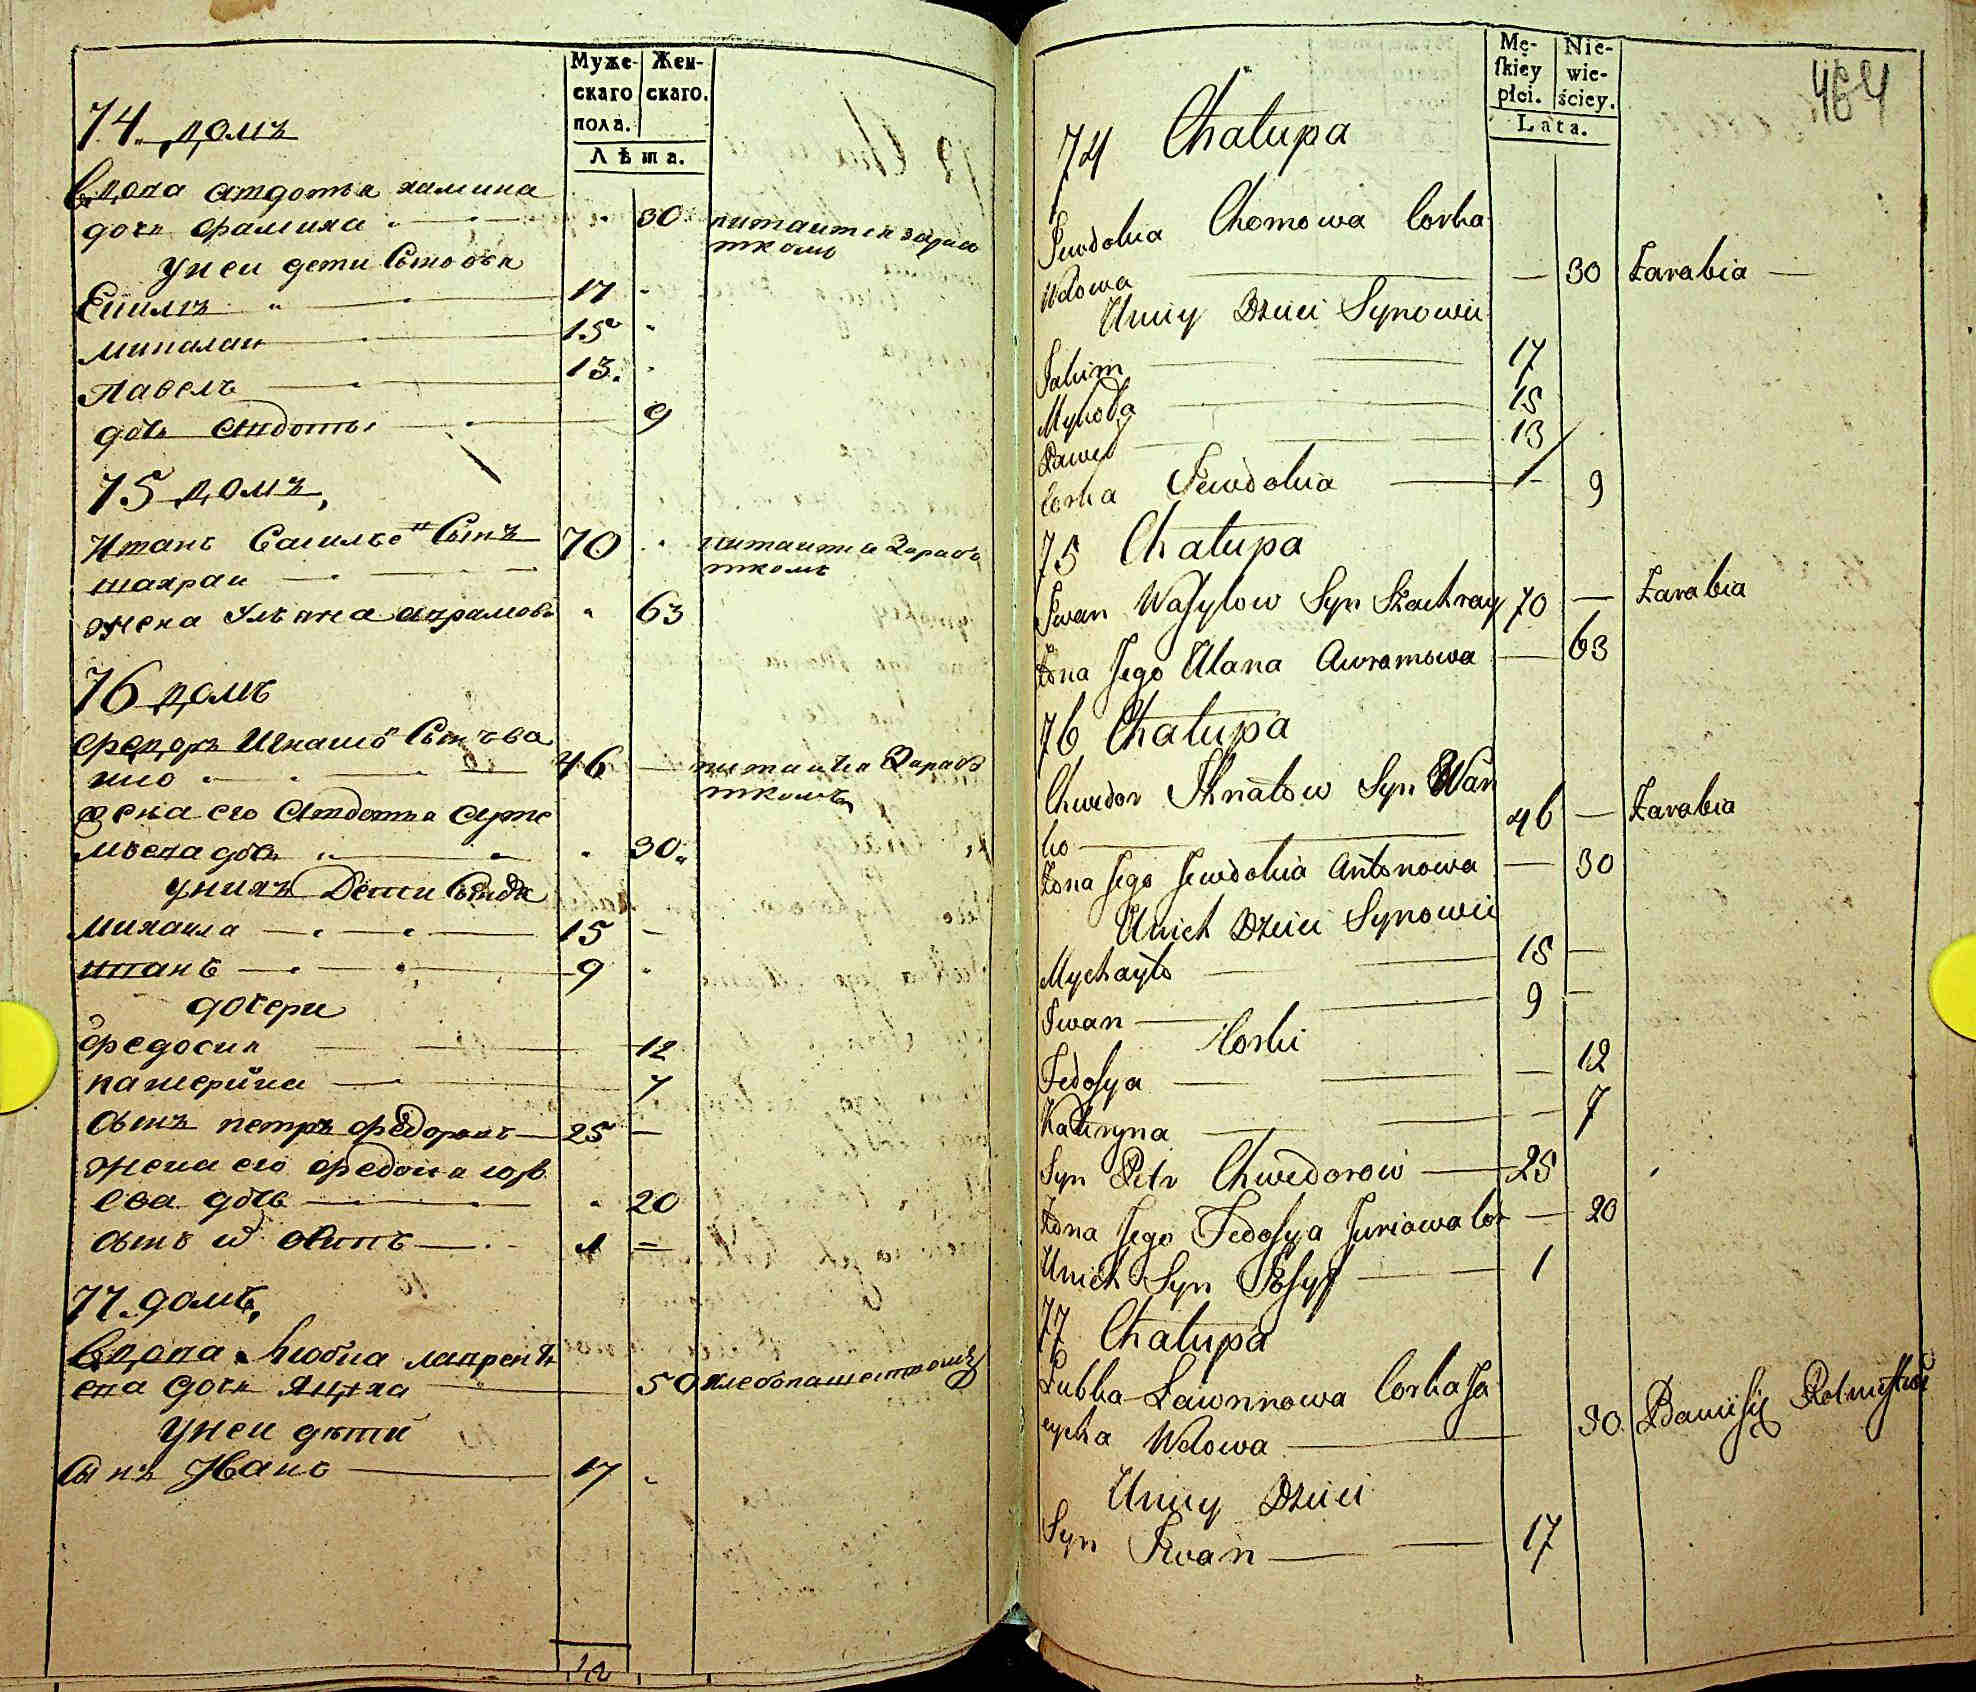 Муже-
скаго
пола.
Жен-
скаго.
Лѣта.
74. домъ
вдова авдотья хамина
дочь фамиха 30 питаится зараб
ткомъ
у неи дети Сыновья
Екимъ 17
миколаи 15
Павелъ 13.
дочь Авдотья 9
75 домъ
Иванъ Василѣв Сынъ 70 питаится Зарабо
ткомъ
шахраи
жена Ульяна аврамова 63
76 домъ
Федоръ Игнатов Сынъ ва
нко 46 питаится Зарабо
ткомъ
жена его Авдотья
дочь 30
у нихъ Дети Сыновя
михаила 15
иванъ 9
дочери
федосия 12
катерина 7
Сынъ петръ федоровъ 25
жена его федосия юрь
ева дочь 20
сынъ 1
77. домъ
Вдова Любка лаврентъ
ева дочь яцуха 50 хлебопашествомъ
У неи дѣти
Сынъ Иванъ 17
12
Mę-
skiey
płci.
Nie-
wie-
ściey.
Lata.
464
74 Chałupa
Jewdokia Chomowa Corka
Wdowa 30 Zarabia
U niey Dzieci Synowie
Jakim 17
Mykoła 15
Paweł 13
Corka Jewdokia 9
75 Chałupa
Iwan Wasylow Syn Szachray 70 Zarabia
Żona Jego Ulana Awramowa 63
76 Chałupa
Chwedor Ihnatow Syn Wan
ko 46 Zarabia
Żona Jego Jewdokia Antonowa 30
U nich Dzieci Synowie
Mychayło 15
Iwan 9
Corki
Fedosya 12
Kateryna 7
Syn Petr Chwedorow 25
Żona Jego Fedosya Juriowa Cor 20
U nich Syn Josyf 1
77 Chałupa
Lubka Ławrinowa Corka Ja
cycha Wdowa 50 Bawi się Rolnictwem
U niey Dzieci
Syn Iwan 17